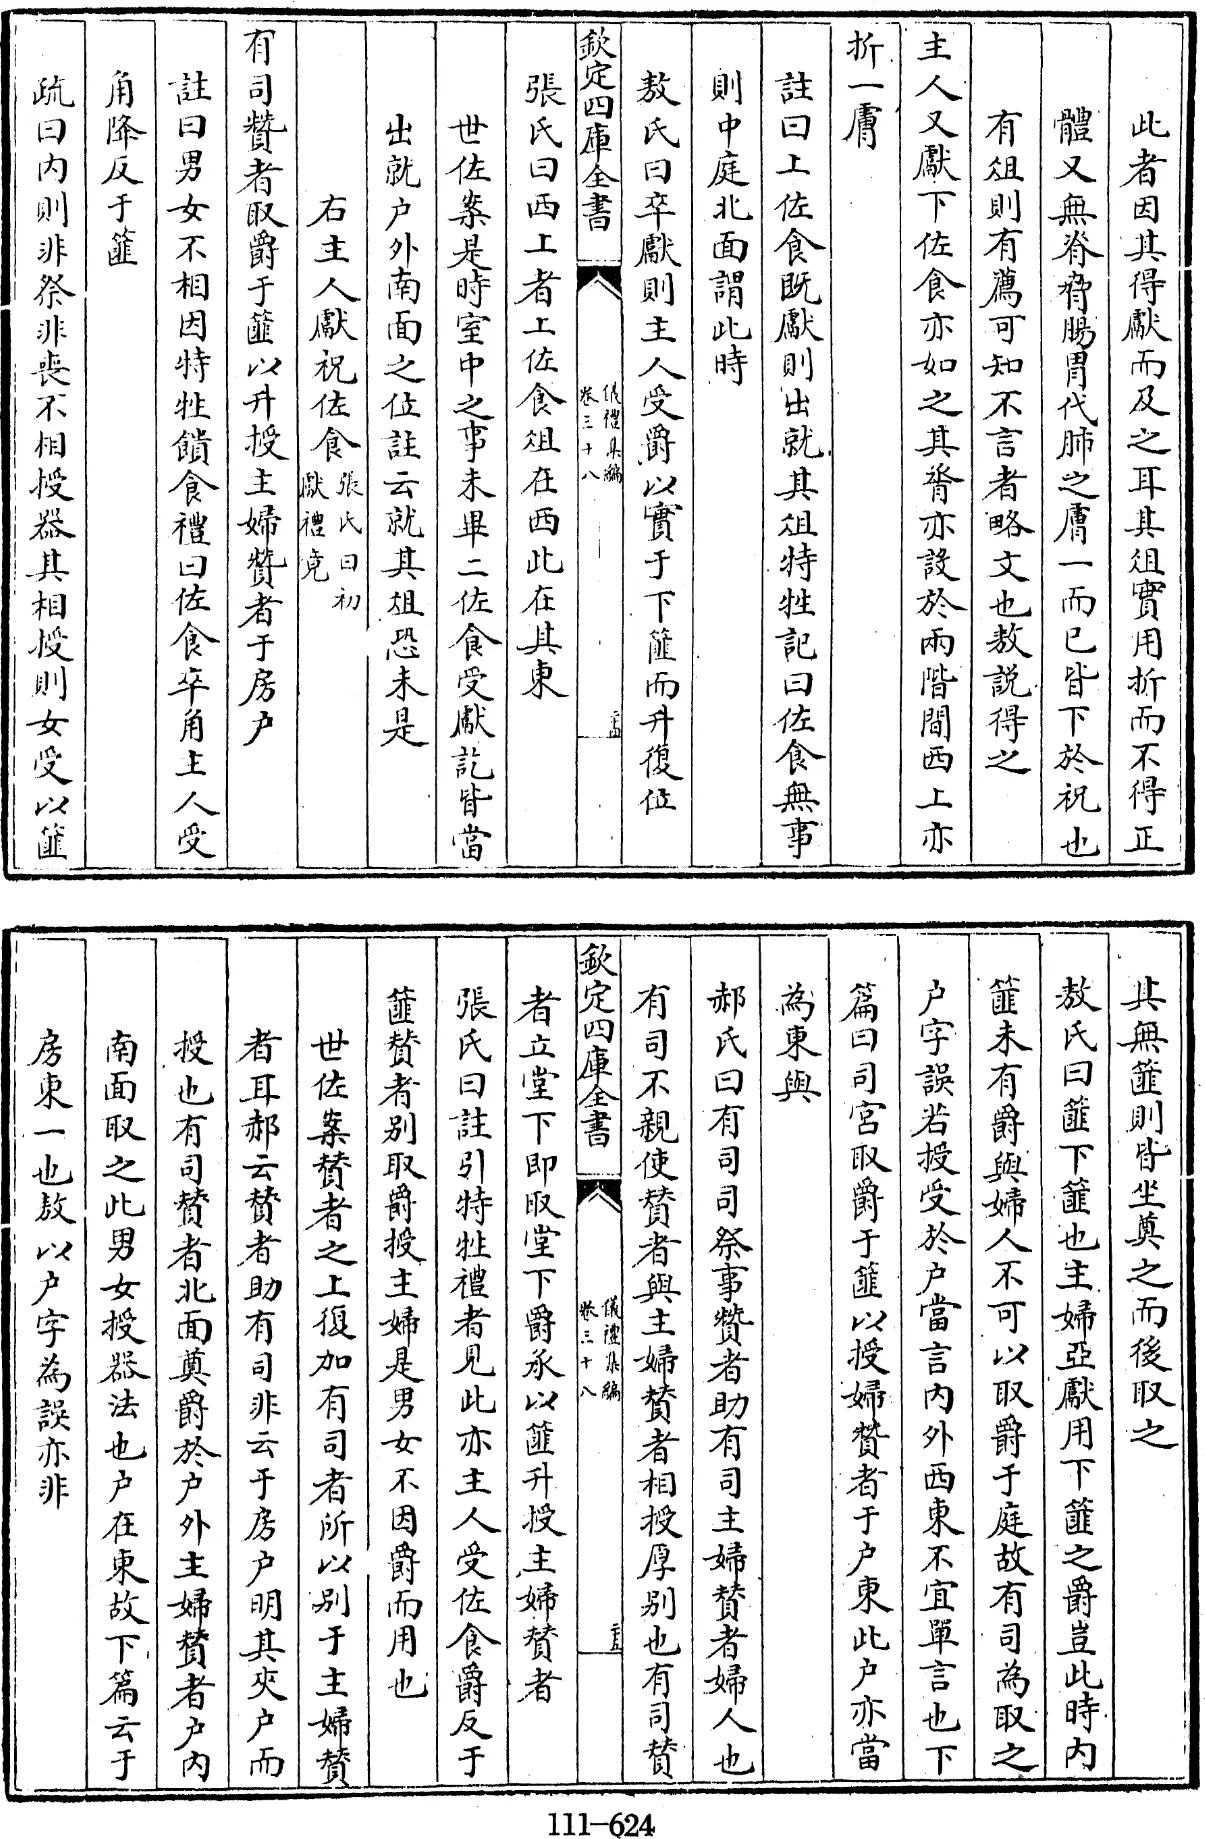 此者因其得獻而及之耳其俎實用折而不得正
體又無脊脅腸胃代肺之膚一而已皆下於祝也
有俎則有薦可知不言者略文也敖説得之
主人又獻下佐食亦如之其脀亦設於兩階間西上亦
折一膚
註曰上佐食既獻則出就其俎特牲記曰佐食無事
則中庭北面謂此時
敖氏曰卒獻則主人受爵以實于下篚而升復位
欽定四庫全書
儀禮集編
卷三十八
張氏曰西上者上佐食俎在西此在其東
世佐案是時室中之事未畢二佐食受獻訖皆當
出就户外南面之位註云就其俎恐未是
右主人獻祝佐食
張氏曰初
獻禮竟
有司贊者取爵于篚以升授主婦贊者于房户
註曰男女不相因特牲饋食禮曰佐食卒角主人受
角降反于篚
疏曰内則非祭非喪不相授器其相授則女受以篚
其無篚則皆坐奠之而後取之
敖氏曰篚下篚也主婦亞獻用下篚之爵豈此時内
篚未有爵與婦人不可以取爵于庭故有司為取之
户字誤若授受於户當言内外西東不宜單言也下
篇曰司宮取爵于篚以授婦贊者于户東此户亦當
為東與
郝氏曰有司司祭事贊者助有司主婦贊者婦人也
有司不親使贊者與主婦贊者相授厚别也有司贊
欽定四庫全書
儀禮集編
卷三十八
者立堂下即取堂下爵承以篚升授主婦贊者
張氏曰註引特牲禮者見此亦主人受佐食爵反于
篚贊者别取爵授主婦是男女不因爵而用也
世佐案贊者之上復加有司者所以别于主婦贊
者耳郝云贊者助有司非云于房户明其夾户而
授也有司贊者北面奠爵於户外主婦贊者户内
南面取之此男女授器法也户在東故下篇云于
房東一也敖以户字為誤亦非
111-624